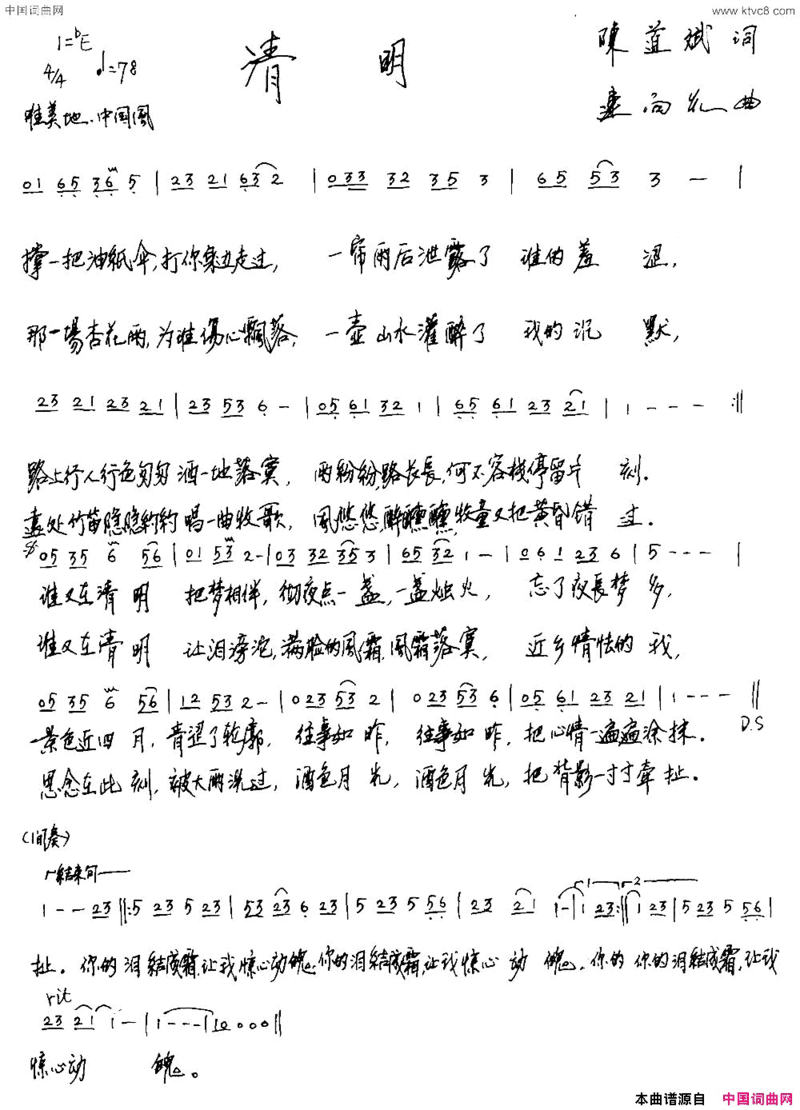 中国词曲网
www.ktvc8.com
1=bE
4/4 =78
清 明
陳益斌 词
向 曲
唯美地、中国風
01 65 36 5 | 23 21 63 2 | 033 32 35 3 | 65 53 3 — |
撑一把油紙伞,打你身边走过, 一帘雨后泄露了 谁的羞 涩,
那一場杏花雨,为谁傷心飄落, 一壶山水灌醉了 我的沉 默,
23 21 23 21 | 23 53 6 - | 05 61 32 1 | 65 61 23 21 | 1 - - - :||
路上行人行色匆匆 洒一地落寞, 雨紛紛,路长長,何不客栈停留片 刻.
遠处竹笛隐隐約約 唱一曲牧歌, 風悠悠,醉醺醺,牧童又把黄昏错 过.
05 35 6 56 | 01 53 2 - | 03 32 35 3 | 65 32 1 - | 0 6 1 23 6 | 5 - - - |
谁又在清 明 把梦相伴, 彻夜点一 盏,一盏烛火, 忘了夜長梦 多,
谁又在清 明 让泪滂沱,满脸的風霜,風霜落寞, 近乡情怯的 我,
05 35 6 56 | 12 53 2 - | 023 53 2 | 023 53 6 | 05 61 23 21 | 1 - - - ||
D.S
景色近四 月, 青涩了轮廓, 往事如 昨, 往事如 昨, 把心情一遍遍涂抹.
思念在此 刻, 被大雨洗过, 酒色月 光, 酒色月 光, 把背影一寸寸牵 扯.
(间奏)
结束句
1 - - 23 ||: 5 23 5 23 | 53 23 6 23 | 5 23 5 56 | 23 21 1 - | 1 23 :|| 1 23 | 5 23 5 56 |
扯。你的泪結成霜,让我惊心动魄,你的泪結成霜,让我惊心 动 魄。你的 你的泪結成霜,让我
rit
23 21 1 - | 1 - - - | 10 0 0 0 ||
惊心动 魄。
本曲谱源自 中国词曲网